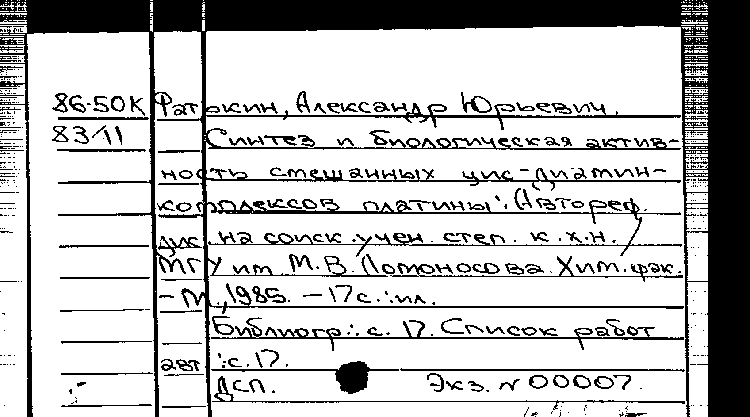 86-50К Фатькин, Александр Юрьевич.
83/11 Синтез и биологическая актив-
ность смешанных цис-диамин-
комплексов платины: (Автореф.
дис. на соиск. учен. степ. к.х.н.)
МГУ им. М.В. Ломоносова. Хим. фак.
- М., 1985. - 17 с.: ил.
Библиогр.: с. 17. Список работ
авт.: с. 17.
ДСП. Экз. N 00007.